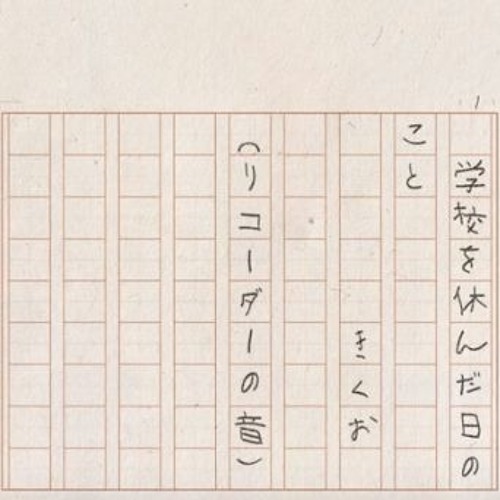 学校を休んだ日の
こと
きくお
（リコーダーの音）